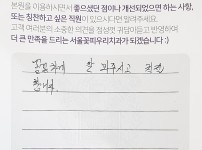 본원을 이용하시면서 좋으셨던 점이나 개선되었으면 하는 사항,
또는 칭찬하고 싶은 직원이 있으시다면 말씀해주세요.
고객 여러분의 소중한 의견을 정성껏 귀담아듣고 반영하여
더 큰 만족을 드리는 서울꽃피우리치과가 되겠습니다 :)
꼼꼼하게 잘 봐주시고 친절
합니다.